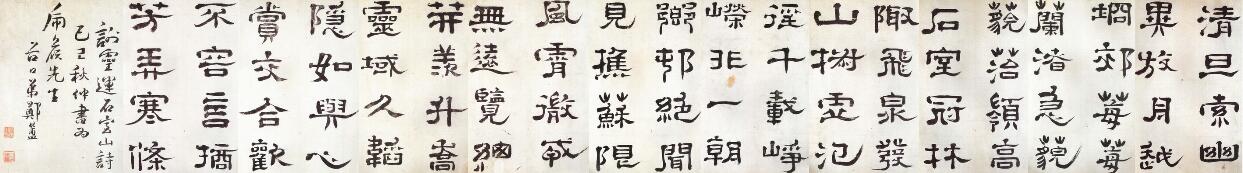 清旦索幽
異放舟越
坰郊莓莓
蘭渚急藐
藐菭嶺高
石室冠林
陬飛泉發
山椒虛氾
徑千載崢
嶸非一朝
鄉邨絕聞
見樵蘇限
風霄微戎
無遠覽總
笄羨升喬
靈域久韜
隱如與心
賞交合歡
不容言摘
芳弄寒條
謝靈運石室山詩
己巳秋仲書為
先生
谷口弟鄭簠